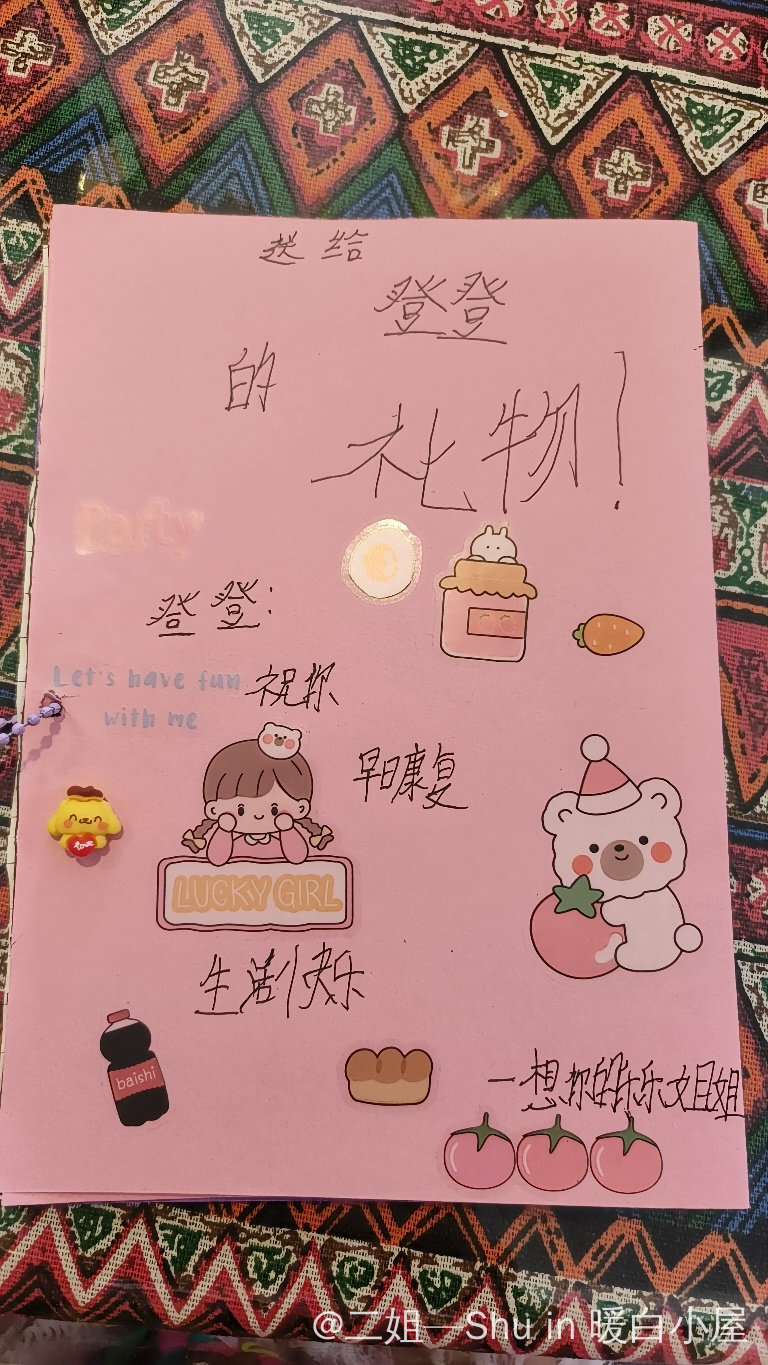 送给
登登
的
礼物!
Party
登登:
Let's have fun
with me
祝你
早日康复
LUCKY GIRL
love
生活快乐
baishi
一想你的乐乐姐姐
@二姐—Shu in 暖白小屋